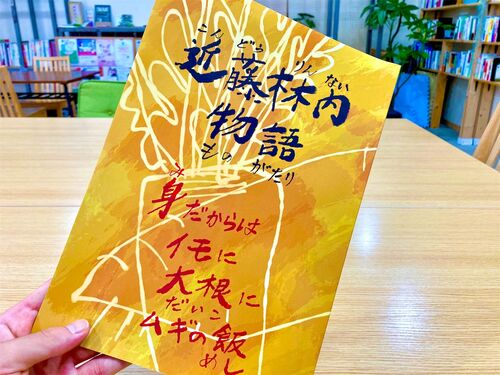 こん どう りん ない
近藤林内
物語
もの がたり
み
身だからは
イモに
大根に
だいこ
ムギの飯
めし